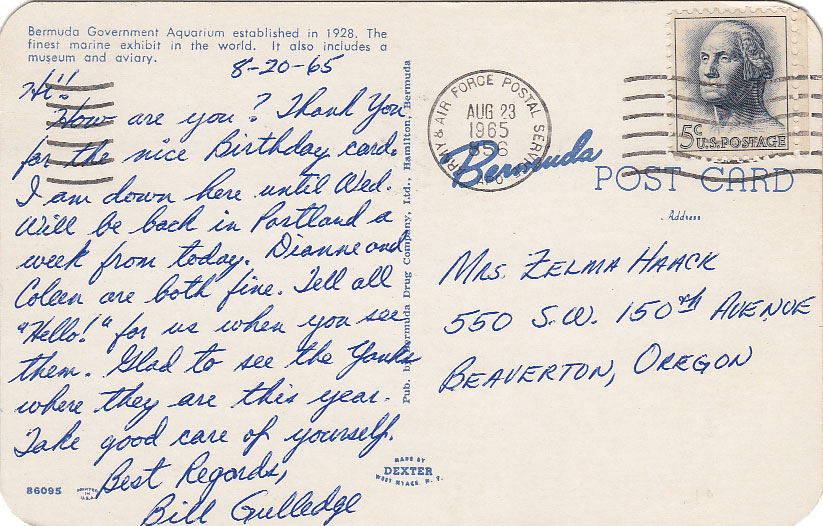 Bermuda Government Aquarium established in 1928. The
finest marine exhibit in the world. It also includes a
museum and aviary.
8-20-65
Hi!
How are you? Thank You
for the nice Birthday card.
I am down here until Wed.
Will be back in Portland a
week from today. Dianne and
Coleen are both fine. Tell all
"Hello!" for us when you see
them. Glad to see the Yanks
where they are this year.
Take good care of yourself.
Best Regards,
Bill Gulledge
86095
PRINTED
IN
U.S.A.
Pub. by Bermuda Drug Company, Ltd., Hamilton, Bermuda
MADE BY
DEXTER
WEST NYACK, N. Y.
ARMY & AIR FORCE POSTAL SERVICE
AUG 23
1965
856
APO
Bermuda
5c
U.S. POSTAGE
POST CARD
Address
MRS. ZELMA HAACK
550 S.W. 150th AVENUE
BEAVERTON, OREGON